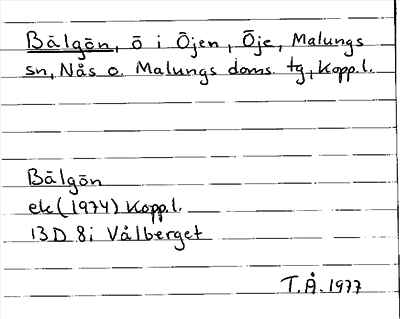 Bälgön, ö i Öjen, Öje, Malungs
sn, Nås o. Malungs doms. tg, Kopp.l.
Bälgön
ek (1974) Kopp.l.
13D 8i Vålberget
T.Å. 1977